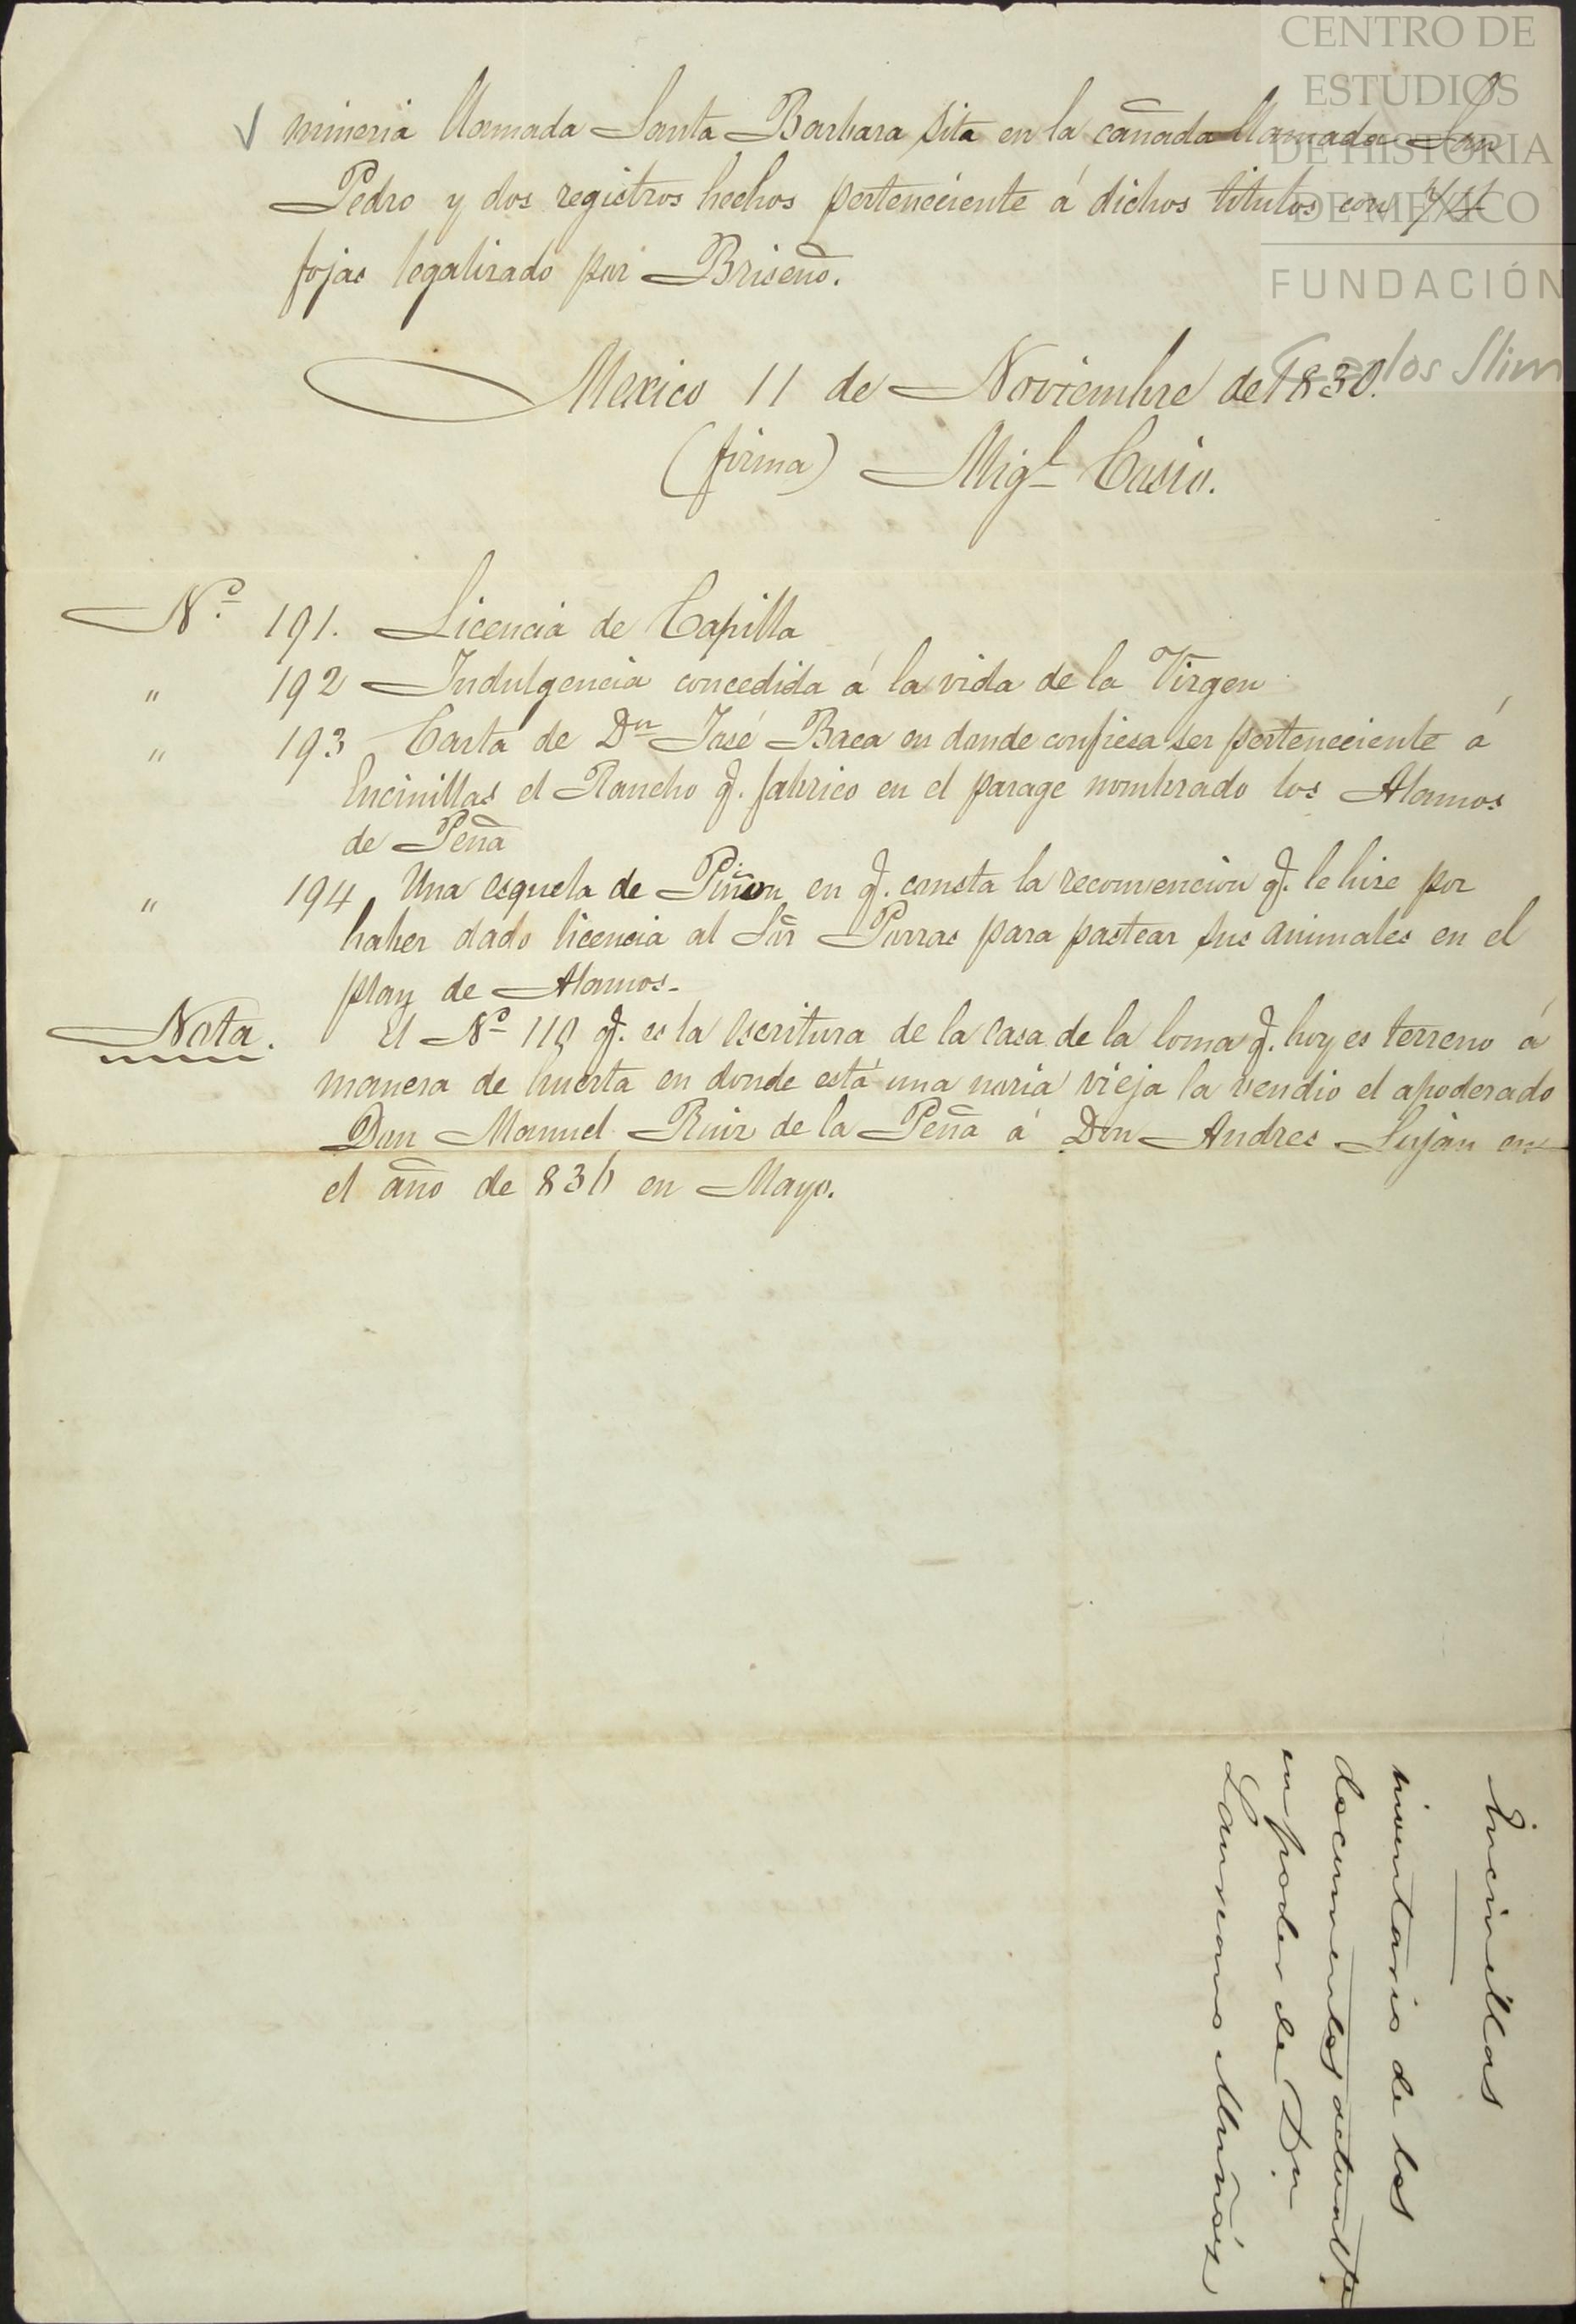 CENTRO DE
ESTUDIOS
DE HISTORIA
DE MEXICO
FUNDACIÓN
Carlos Slim
mineria llamada Santa Barbara sita en la cañada llamada San
Pedro y dos registros hechos perteneciente á dichos titulos con
fojas legalizado por Briseño.
Mexico 11 de Noviembre de 1830.
(firma) Migl
Nº 191. Licencia de Capilla
" 192 Indulgencia concedida á la vida de la Virgen
" 193 Carta de Dn José Baca en donde confiesa ser perteneciente á
Encinillas el Rancho q. fabrico en el parage nombrado los Alamos
de Peña
" 194 Una esquela de Piñon en q. consta la reconvencion q. le hize por
haber dado licencia al Sõr Porras para pastear sus animales en el
plan de Alamos-
Nota. El Nº q. es la escritura de la casa de la loma q. hoy es terreno á
manera de huerta en donde está una noria vieja la vendio el apoderado
Don Manuel Ruiz de la Peña á Don Andres Lujan en
el año de 836 en Mayo.
Encinillas
inventario de los
documentos actualte
en poder de Dn
Laureano Muñóz